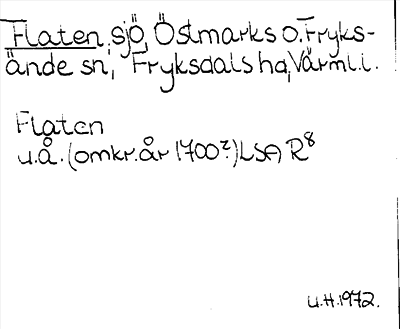 Flaten, sjö, Östmarks o. Fryks-
ände sn, Fryksdals hd, Värml.l.
Flaten
u.å. (omkr. år 1700?) LSA R8
U.H. 1972.